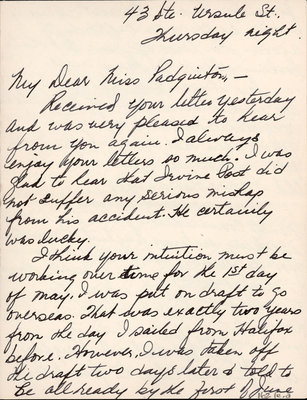 43 Ste. Ursule St.,
Thursday night.
My Dear Miss Padginton,—
Received your letter yesterday
and was very pleased to hear
from you again. I always
enjoy your letters so much. I was
glad to hear that Irvine Post did
not suffer any serious mishap
from his accident. He certainly
was lucky.
I think your intuition must be
working over time for the 1st day
of May. I was put on draft to go
overseas. That was exactly two years
from the day I sailed from Halifax
before. However, I was taken off
the draft two days later & told to
be all ready by the first of June